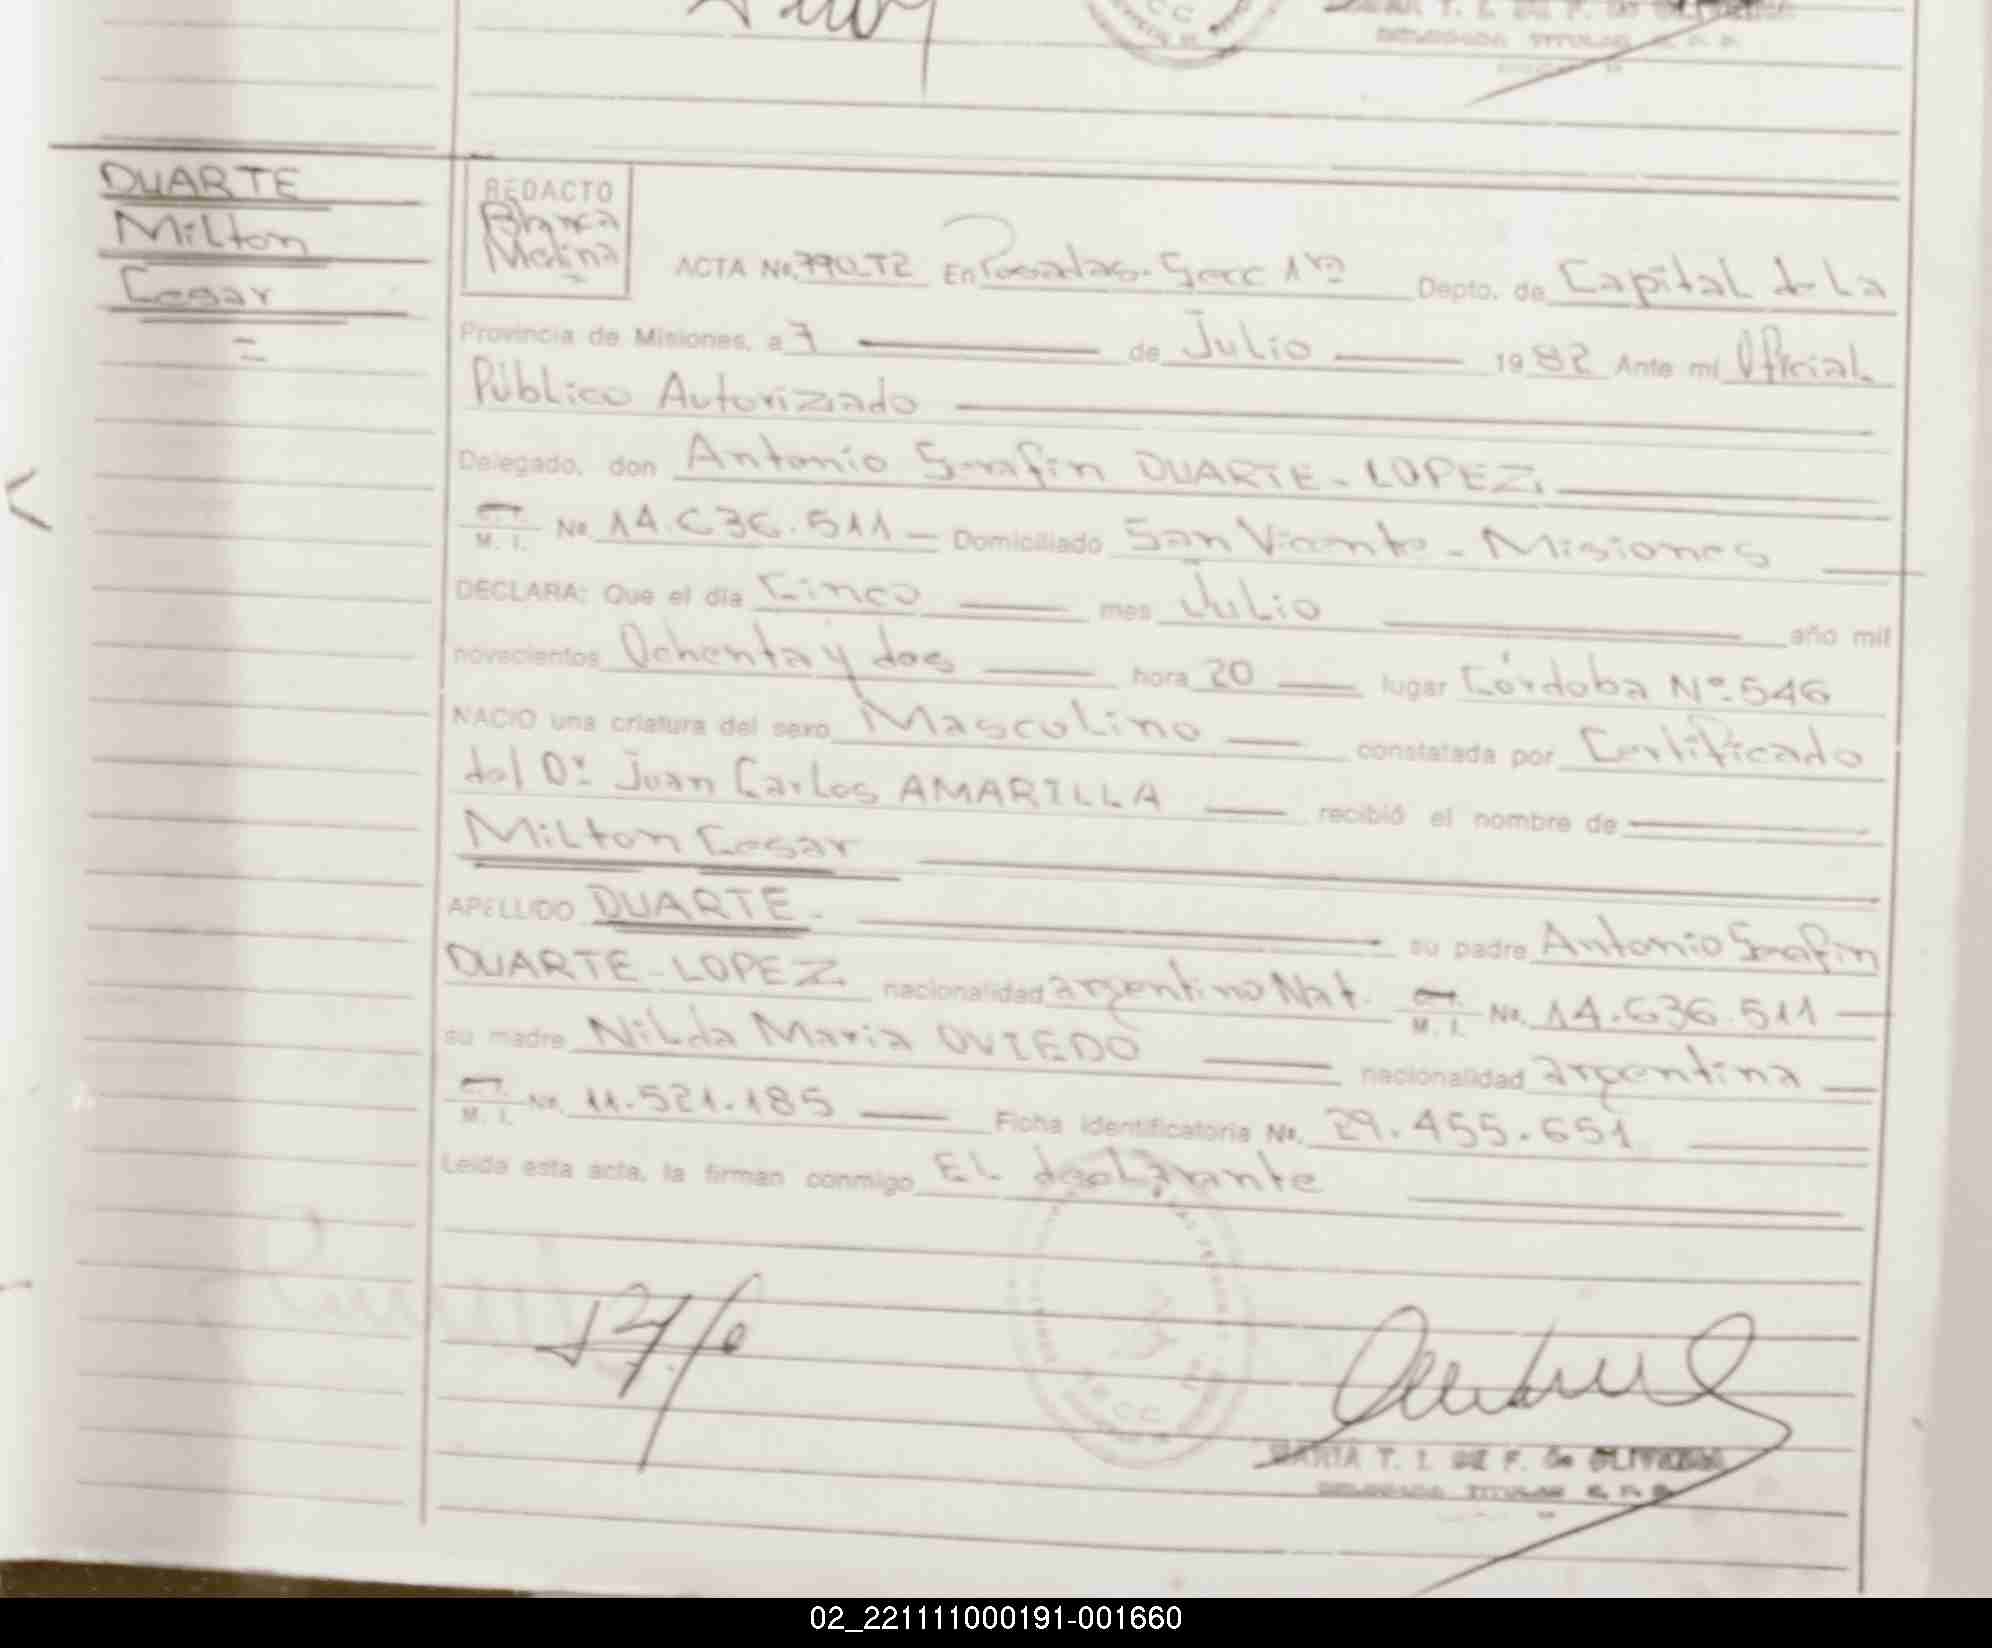 DUARTE
Milton
Cesar
REDACTO
Blanca
Molina
ACTA No. 790.T2 En Posadas. Secc 1ra Depto. de Capital de La
Provincia de Misiones, a 7 de Julio 1982 Ante mi Oficial
Público Autorizado
Delegado, don Antonio Serafin DUARTE-LOPEZ.
M. I. No 14.636.511 - Domiciliado San Vicente - Misiones
DECLARA: Que el día Cinco mes Julio año mil
novecientos Ochenta y dos hora 20 lugar Córdoba Nº 546
NACIO una criatura del sexo Masculino constatada por Certificado
del Dr Juan Carlos AMARILLA recibió el nombre de
Milton Cesar
APELLIDO DUARTE. su padre Antonio Serafin
DUARTE-LOPEZ. nacionalidad argentino Nat. M. I. No. 14.636.511
su madre Nilda Maria OVIEDO nacionalidad argentina
M. I. No. 11.521.185 Ficha identificatoria No. 29.455.651
Leída esta acta, la firman conmigo EL declarante
MARIA T. I. DE F. de OLIVEIRA
DELEGADA TITULAR
02_221111000191-001660